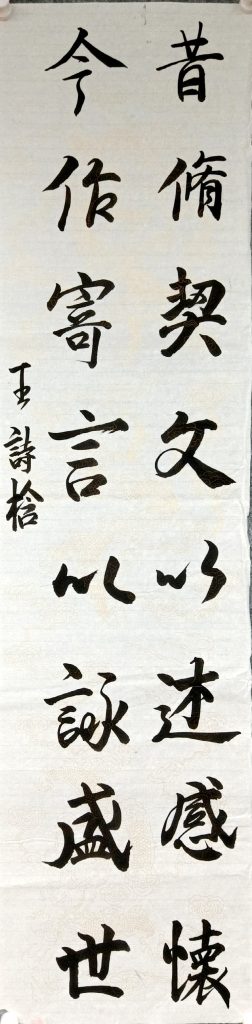 昔脩契文以述感懷
今作寄言以詠盛世
王詩